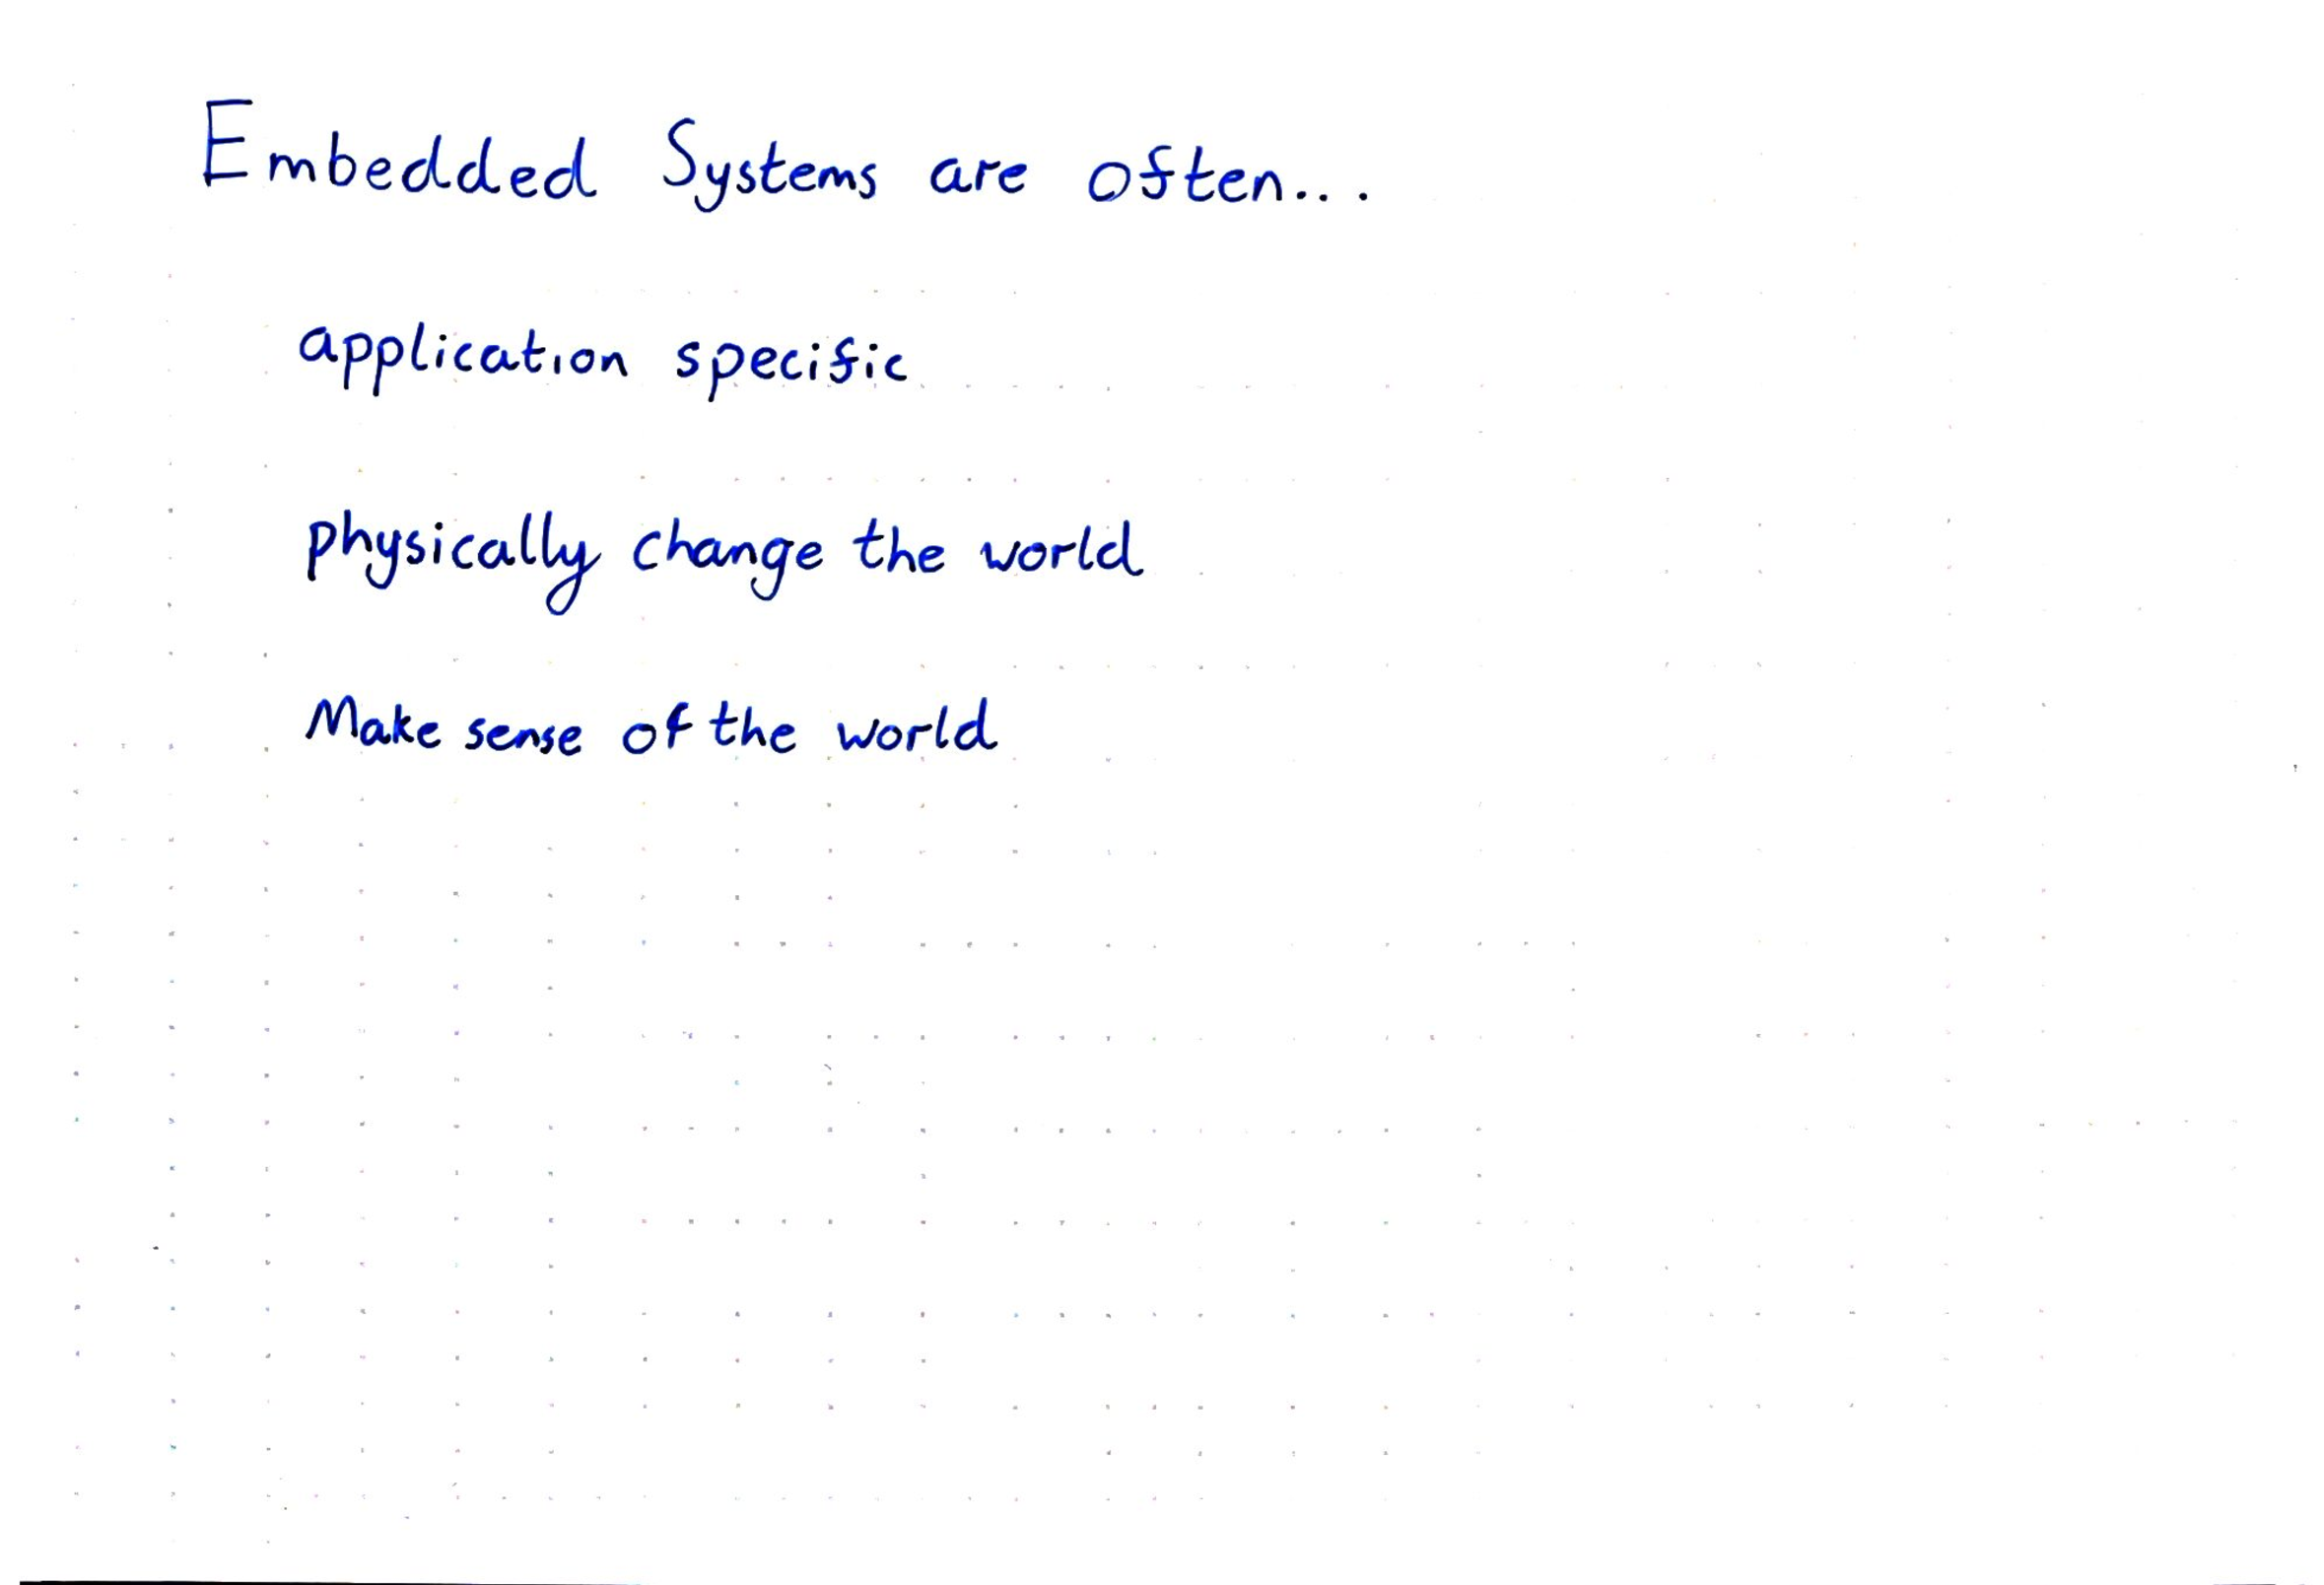 Embedded Systems are often...
application specific
physically change the world
Make sense of the world